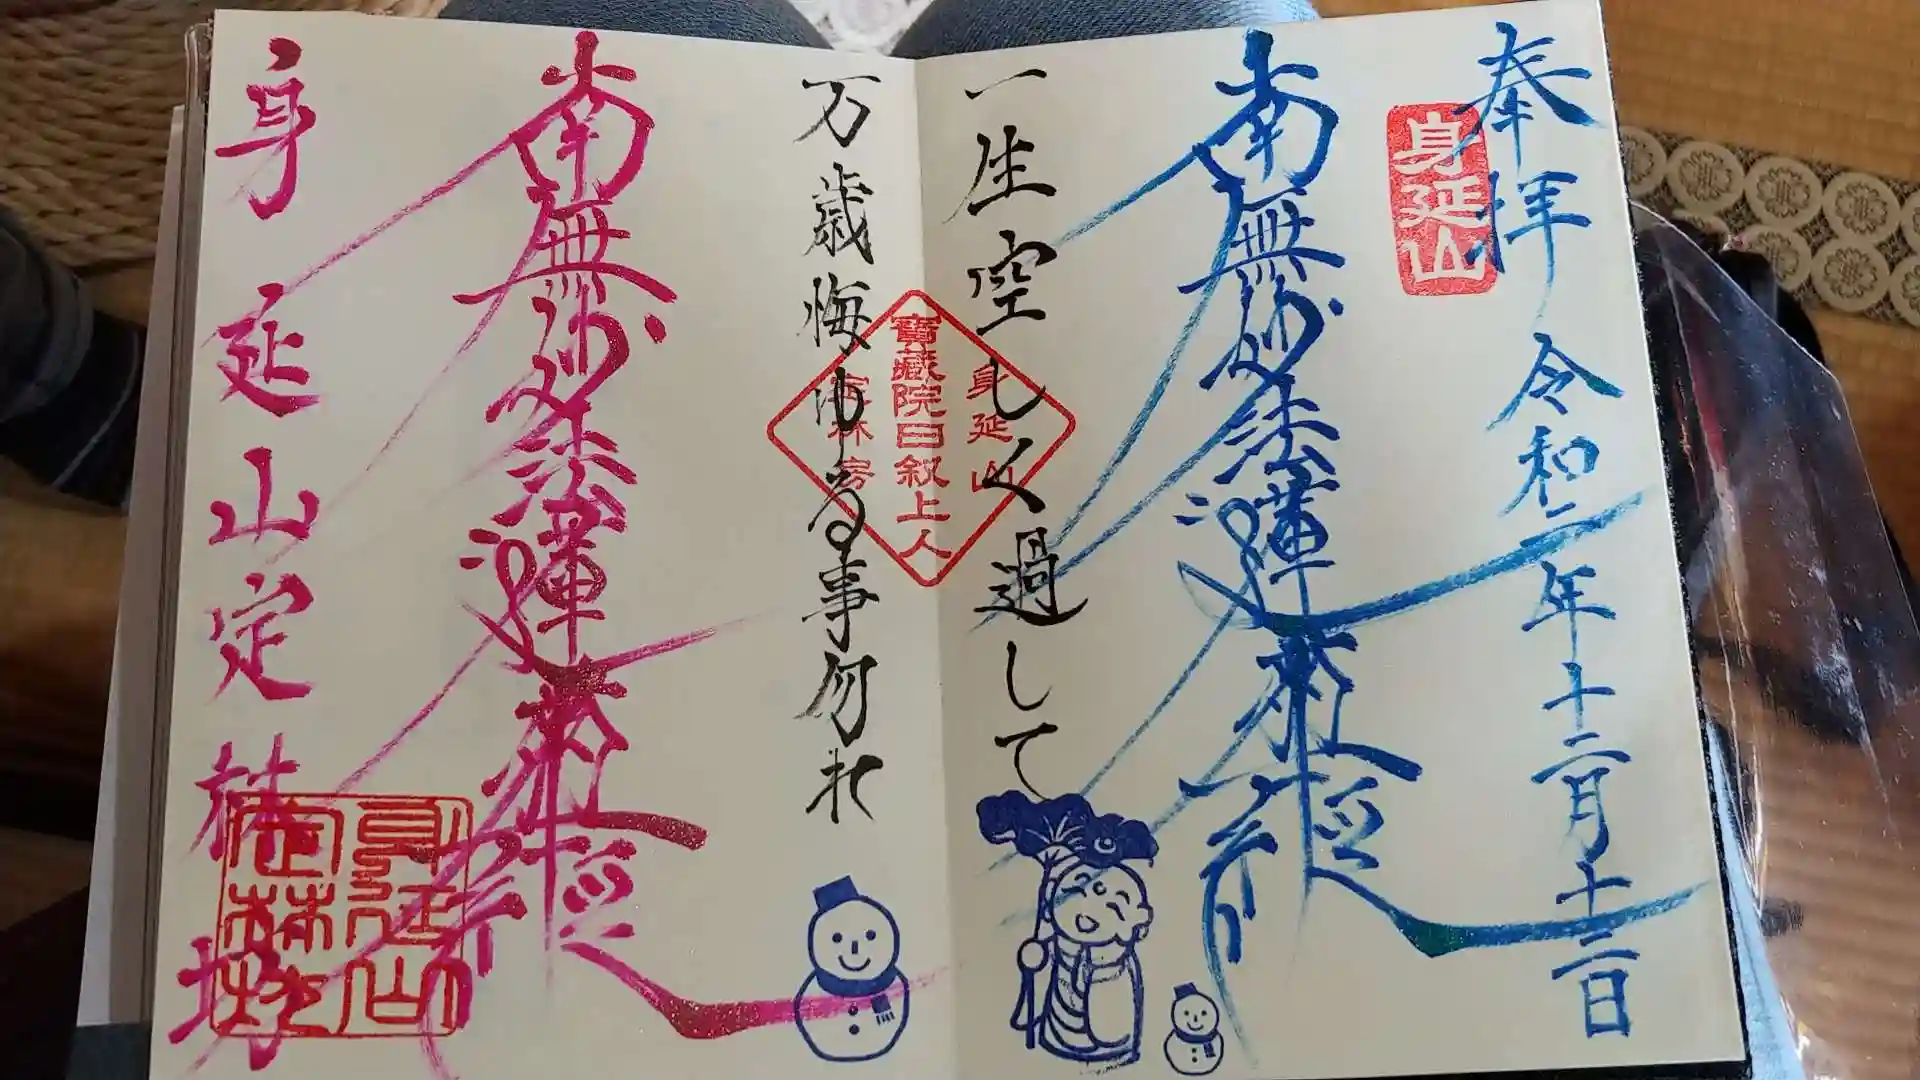 奉拝 令和二年十二月十三日
身延山
南無妙法蓮華経
一生空しく過して
万歳悔ゆる事勿れ
身延山
寶蔵院日叙上人
定林房
南無妙法蓮華経
身延山定林坊
身延山
定林坊